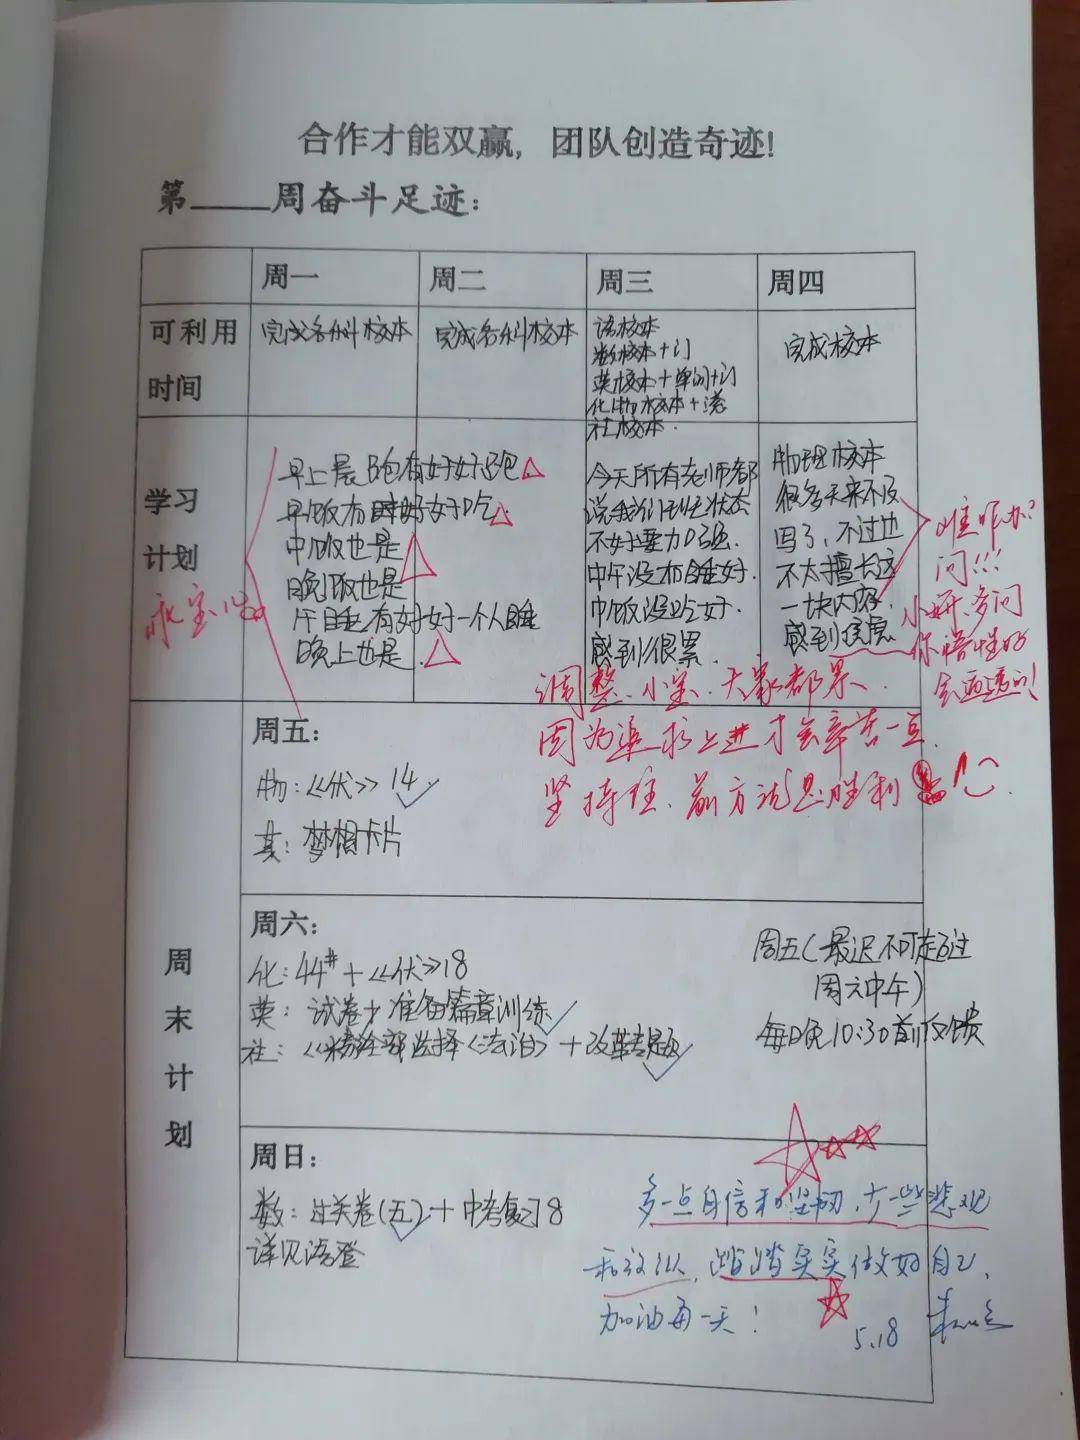 合作才能双赢，团队创造奇迹！
第____周奋斗足迹：
周一 周二 周三 周四
可利用
时间
完成各科校本
完成各科校本
语校本
数校本+订
英校本+单词+订
化物校本+
社校本.
完成校本
学习
计划
早上晨跑有好好跑.
早饭有好好吃.
中饭也是
晚饭也是
午睡有好好一个人睡
晚上也是.
今天所有老师都
说我们状态
不好要加强.
中午没有睡好.
中饭没吃好.
感到很累.
物理校本
很多天来不及
写了，不过也
不太擅长这
一块内容.
感到疲惫
咋办？
问!!!
多问
你悟性好
会
调整.小宝.大家都累.
因为追求上进才会辛苦一点.
坚持住.前方就是胜利
周末计划
周五：
物：《伏》14
英：梦想卡片
周六：
化：44#+《伏》18
英：试卷+准备篇章训练
社：全部选择《法治》+改革专题
周五（最迟不可超过
周六中午）
每日晚10:30前反馈
周日：
数：过关卷(五)+中考复习8
详见语登
多一点自信和坚韧，少一些悲观
和，踏踏实实做好自己，
加油每一天！
5.18